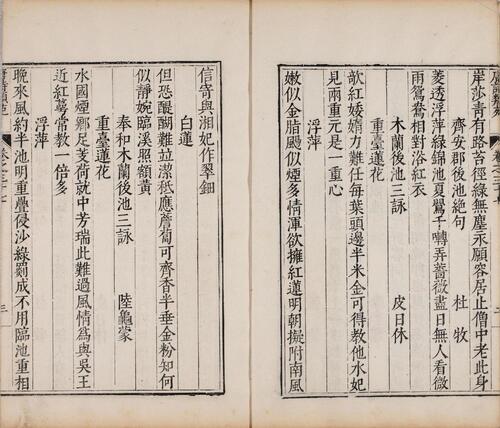 岸莎青有路苔徑綠無塵永願容居止僧中老此身
齊安郡後池絕句 杜牧
菱透浮萍綠錦池夏鶯千囀弄薔薇盡日無人看微
雨鴛鴦相對浴紅衣
木蘭後池三詠 皮日休
重臺蓮花
欹紅婑媠力難任每葉頭邊半米金可得教他水妃
見兩重元是一重心
浮萍
嫩似金脂颺似煙多情渾欲擁紅蓮明朝擬附南風
信寄與湘妃作翠鈿
白蓮
但恐醍醐難並潔秪應薝蔔可齊香半垂金粉知何
似靜婉臨溪照額黃
奉和木蘭後池三詠 陸龜蒙
重臺蓮花
水國煙鄉足芰荷就中芳瑞此難過風情為與吳王
近紅蕚常教一倍多
浮萍
晚來風約半池明重疊侵沙綠罽成不用臨池重相
三